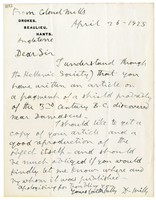 From Colonel Mills
DROKES,
BEAULIEU,
HANTS.
Angleterre
April 26 - 1925
Dear Sir
I understand through
the Hellenic Society that you
have written an article on
a pyxis of a child probably
of the 5th Century B.C. discovered
near Damascus.
I should like to get a
copy of your article and a
good reproduction of the
object itself and should
be much obliged if you would
kindly let me know when and
by whom it was published
Apologising for troubling you
Yours faithfully D. Mills